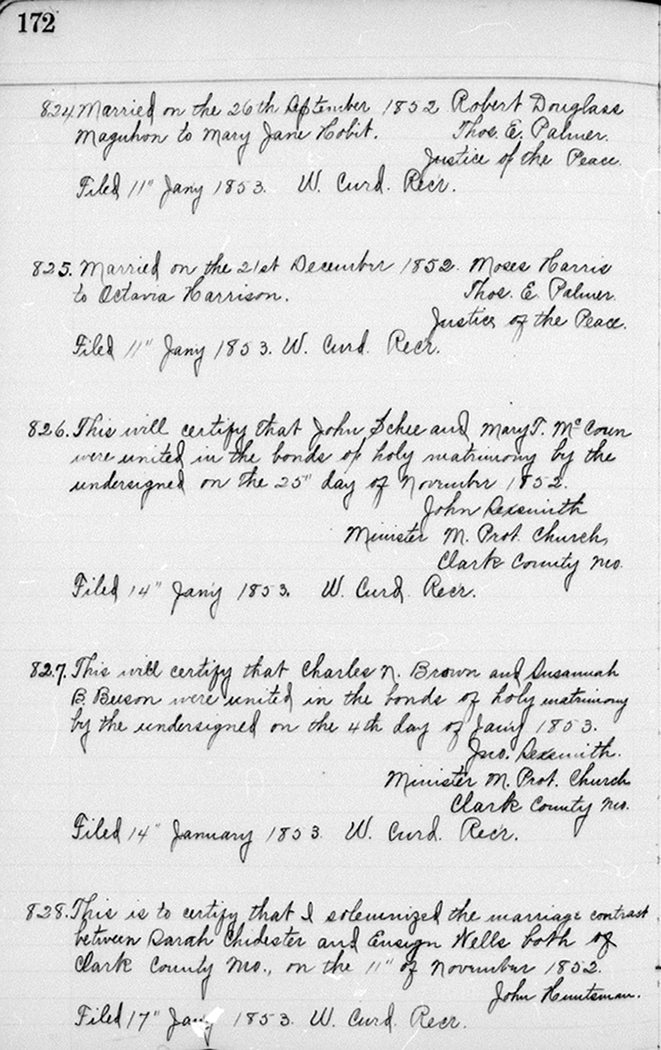 172
824. Married on the 26th September 1852 Robert Douglass
Maguhon to Mary Jane Hobit. Thos. E. Palmer.
Justice of the Peace.
Filed 11" Jan'y 1853. W. Curd. Rec'r.
825. Married on the 21st December 1852. Moses Harris
to Octavia Harrison. Thos. E. Palmer.
Justice of the Peace.
Filed 11" Jan'y 1853. W. Curd. Rec'r.
826. This will certify that John Schee and Mary T. McCoun
were united in the bonds of holy matrimony by the
undersigned on the 25" day of November 1852.
John Sexsmith
Minister M. Prot. Church,
Clark County Mo.
Filed 14" Jan'y 1853. W. Curd. Rec'r.
827. This will certify that Charles N. Brown and Susannah
B. Beeson were united in the bonds of holy matrimony
by the undersigned on the 4th day of Jan'y 1853.
Jno. Sexsmith.
Minister M. Prot. Church
Clark County Mo.
Filed 14" January 1853. W. Curd. Rec'r.
828. This is to certify that I solemnized the marriage contract
between Sarah Chidester and Ensign Wells both of
Clark County Mo., on the 11" of November 1852.
John Huntsman.
Filed 17" Jan'y 1853. W. Curd. Rec'r.